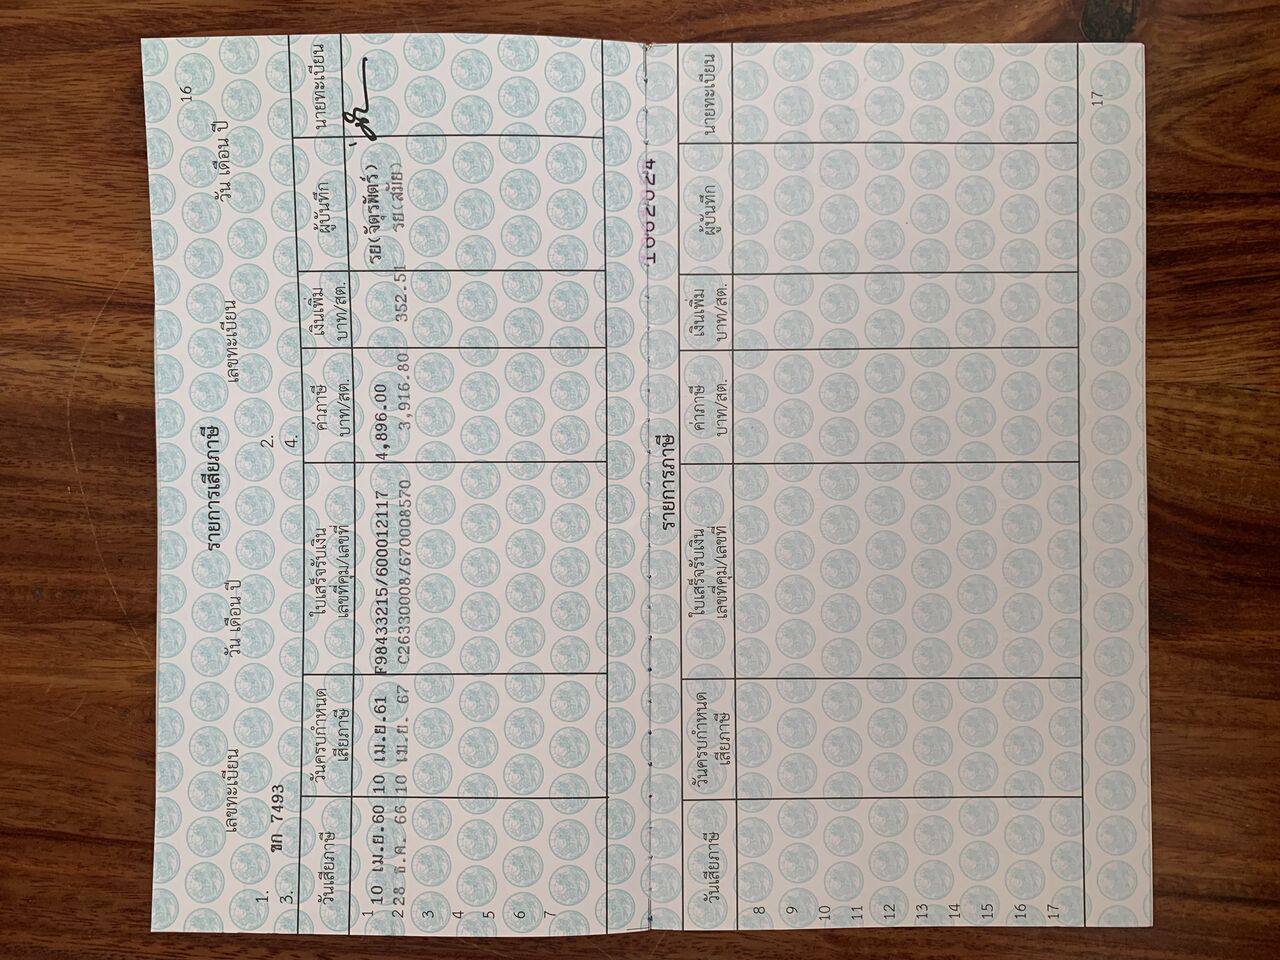 16
รายการเสียภาษี
เลขทะเบียน วัน เดือน ปี เลขทะเบียน วัน เดือน ปี
1. ขก 7493 2.
3. 4.
วันเสียภาษี วันครบกำหนดเสียภาษี ใบเสร็จรับเงิน เลขที่คุม/เลขที่ ค่าภาษี บาท/สต. เงินเพิ่ม บาท/สต. ผู้บันทึก นายทะเบียน
1 10 เม.ย.60 10 เม.ย.61 F98433215/600012117 4,896.00 รย(จัตุรพัตร์)
2 28 ธ.ค. 66 10 เม.ย. 67 C26330008/670008570 3,916.80 352.51 รย(สมัย)
3
4
5
6
7
1002024
รายการภาษี
วันเสียภาษี วันครบกำหนดเสียภาษี ใบเสร็จรับเงิน เลขที่คุม/เลขที่ ค่าภาษี บาท/สต. เงินเพิ่ม บาท/สต. ผู้บันทึก นายทะเบียน
8
9
10
11
12
13
14
15
16
17
17